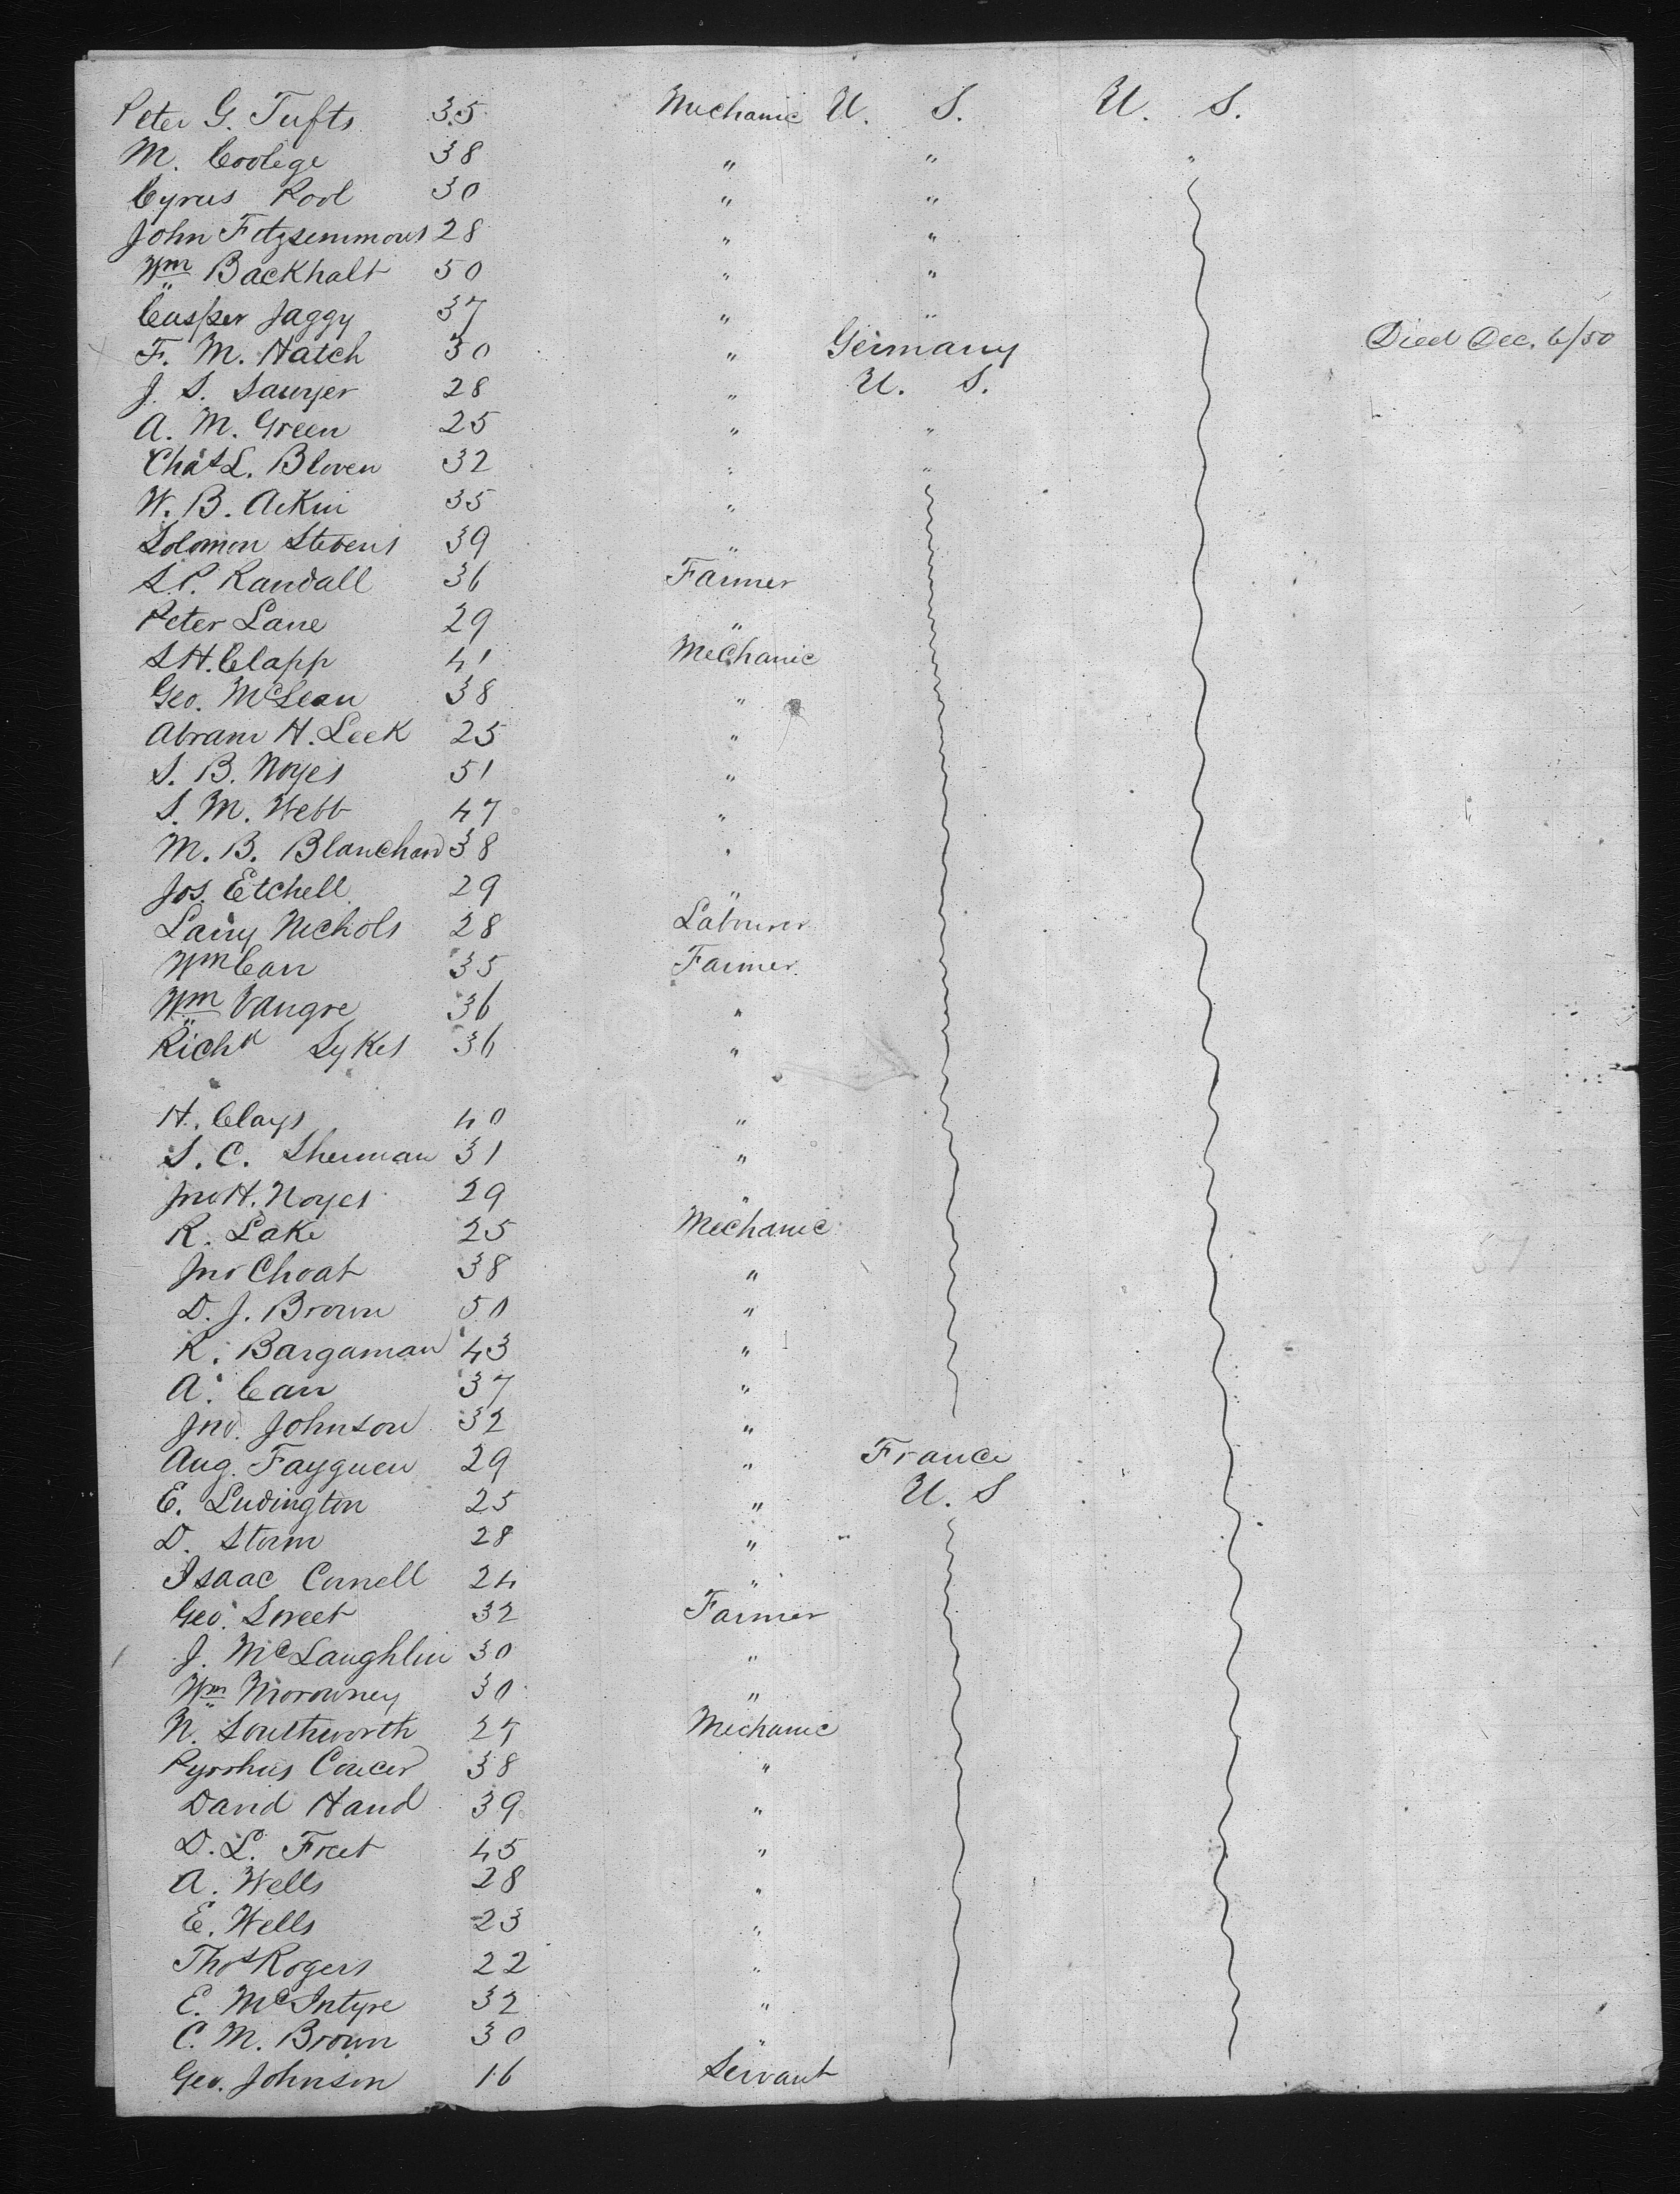 Peter G. Tufts 35 Mechanic U. S. U. S.
M. Coolege 38 " " "
Cyrus Rool 30 " "
John Fitzsemmons 28 " "
Wm Backhalt 50 " "
Casper Jaggy 37 " "
F. M. Hatch 30 " Germany Died Dec. 6/50
J. S. Sawyer 28 " U. S.
A. M. Green 25 " "
Chas L. Bloven 32 " "
W. B. Aikin 35 "
Solomon Stevens 39 "
S. P. Randall 36 Farmer
Peter Lane 29 "
S H. Clapp 41 Mechanic
Geo. McLean 38 "
Abram H. Leek 25 "
S. B. Noyes 51 "
S. M. Webb 47 "
M. B. Blanchard 38 "
Jos. Etchell 29 "
Larry Nichols 28 Labourer
Wm Carr 35 Farmer
Wm Vangre 36 "
Richd Sykes 36 "
H. Clays 40 "
S. C. Sherman 31 "
Jno H. Noyes 29 "
R. Lake 25 Mechanic
Jno Choat 38 "
D. J. Brown 50 "
R. Bargaman 43 "
A. Carr 37 "
Jno. Johnson 32 "
Aug. Fayguen 29 " France
E. Ludington 25 " U. S
D. Storm 28 "
Isaac Cornell 24 "
Geo. Sweet 32 Farmer
J. McLaughlin 30 "
Wm Morowney 30 "
N. Southworth 27 Mechanic
Pyrrhus Concer 38 "
David Hand 39 "
D. L. Freet 45 "
A. Wells 28 "
E. Wells 23 "
Thos Rogers 22 "
E. McIntyre 32 "
C. M. Brown 30 "
Geo. Johnson 16 Servant